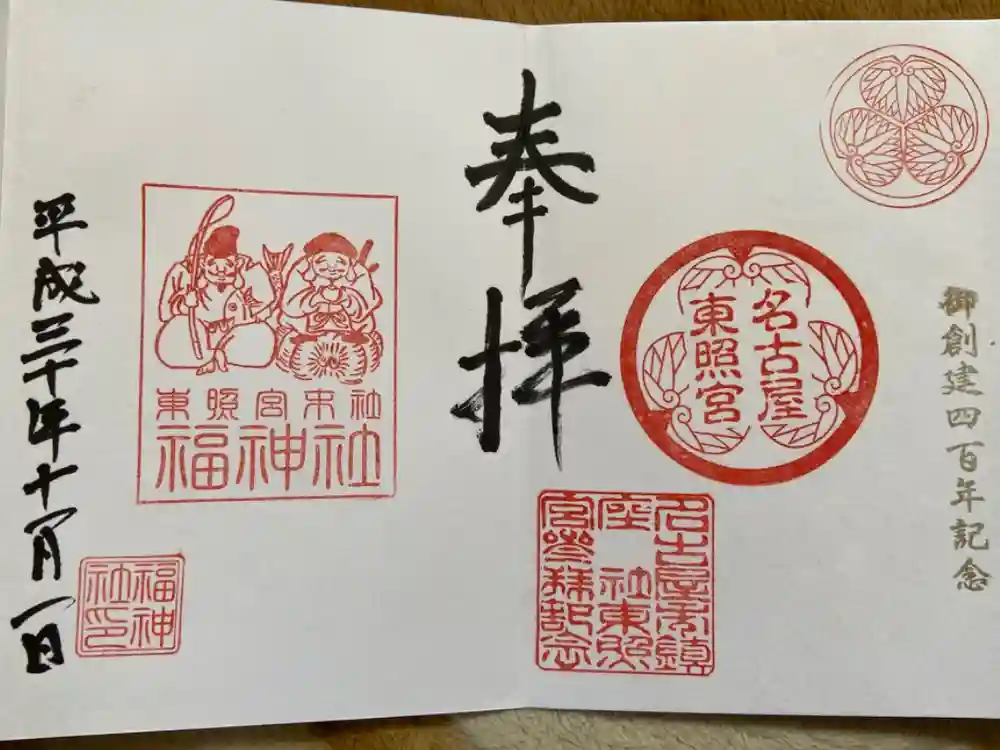 御創建四百年記念
名古屋
東照宮
名古屋市鎮
座 社東照
宮参拝記念
奉拝
東照宮末社
福神社
福神
社印
平成三十年十月一日